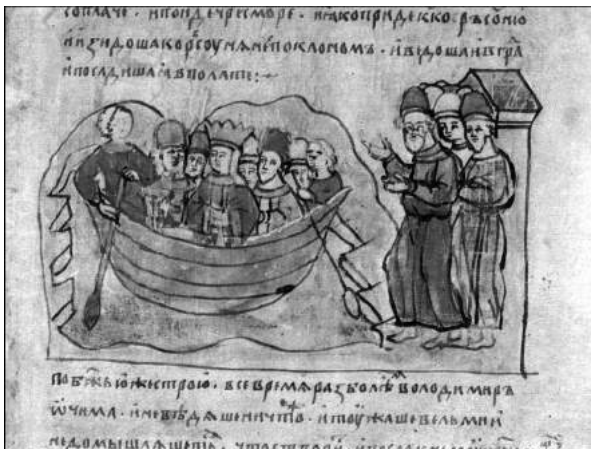 соплаче · ипоиде чресморе · иꙗко приде к коръсоню
иизидоша корсоунѧне споклономъ · иведоша ю в гра
ипосадиша ю вполате :~
По бж҃ью же строю · все времѧ разболѣⷭ володимиръ
ѡчима · иневидѧше ничтоⷤ · итоужаше вельми и
недомышлѧше · что створи · ипосла к